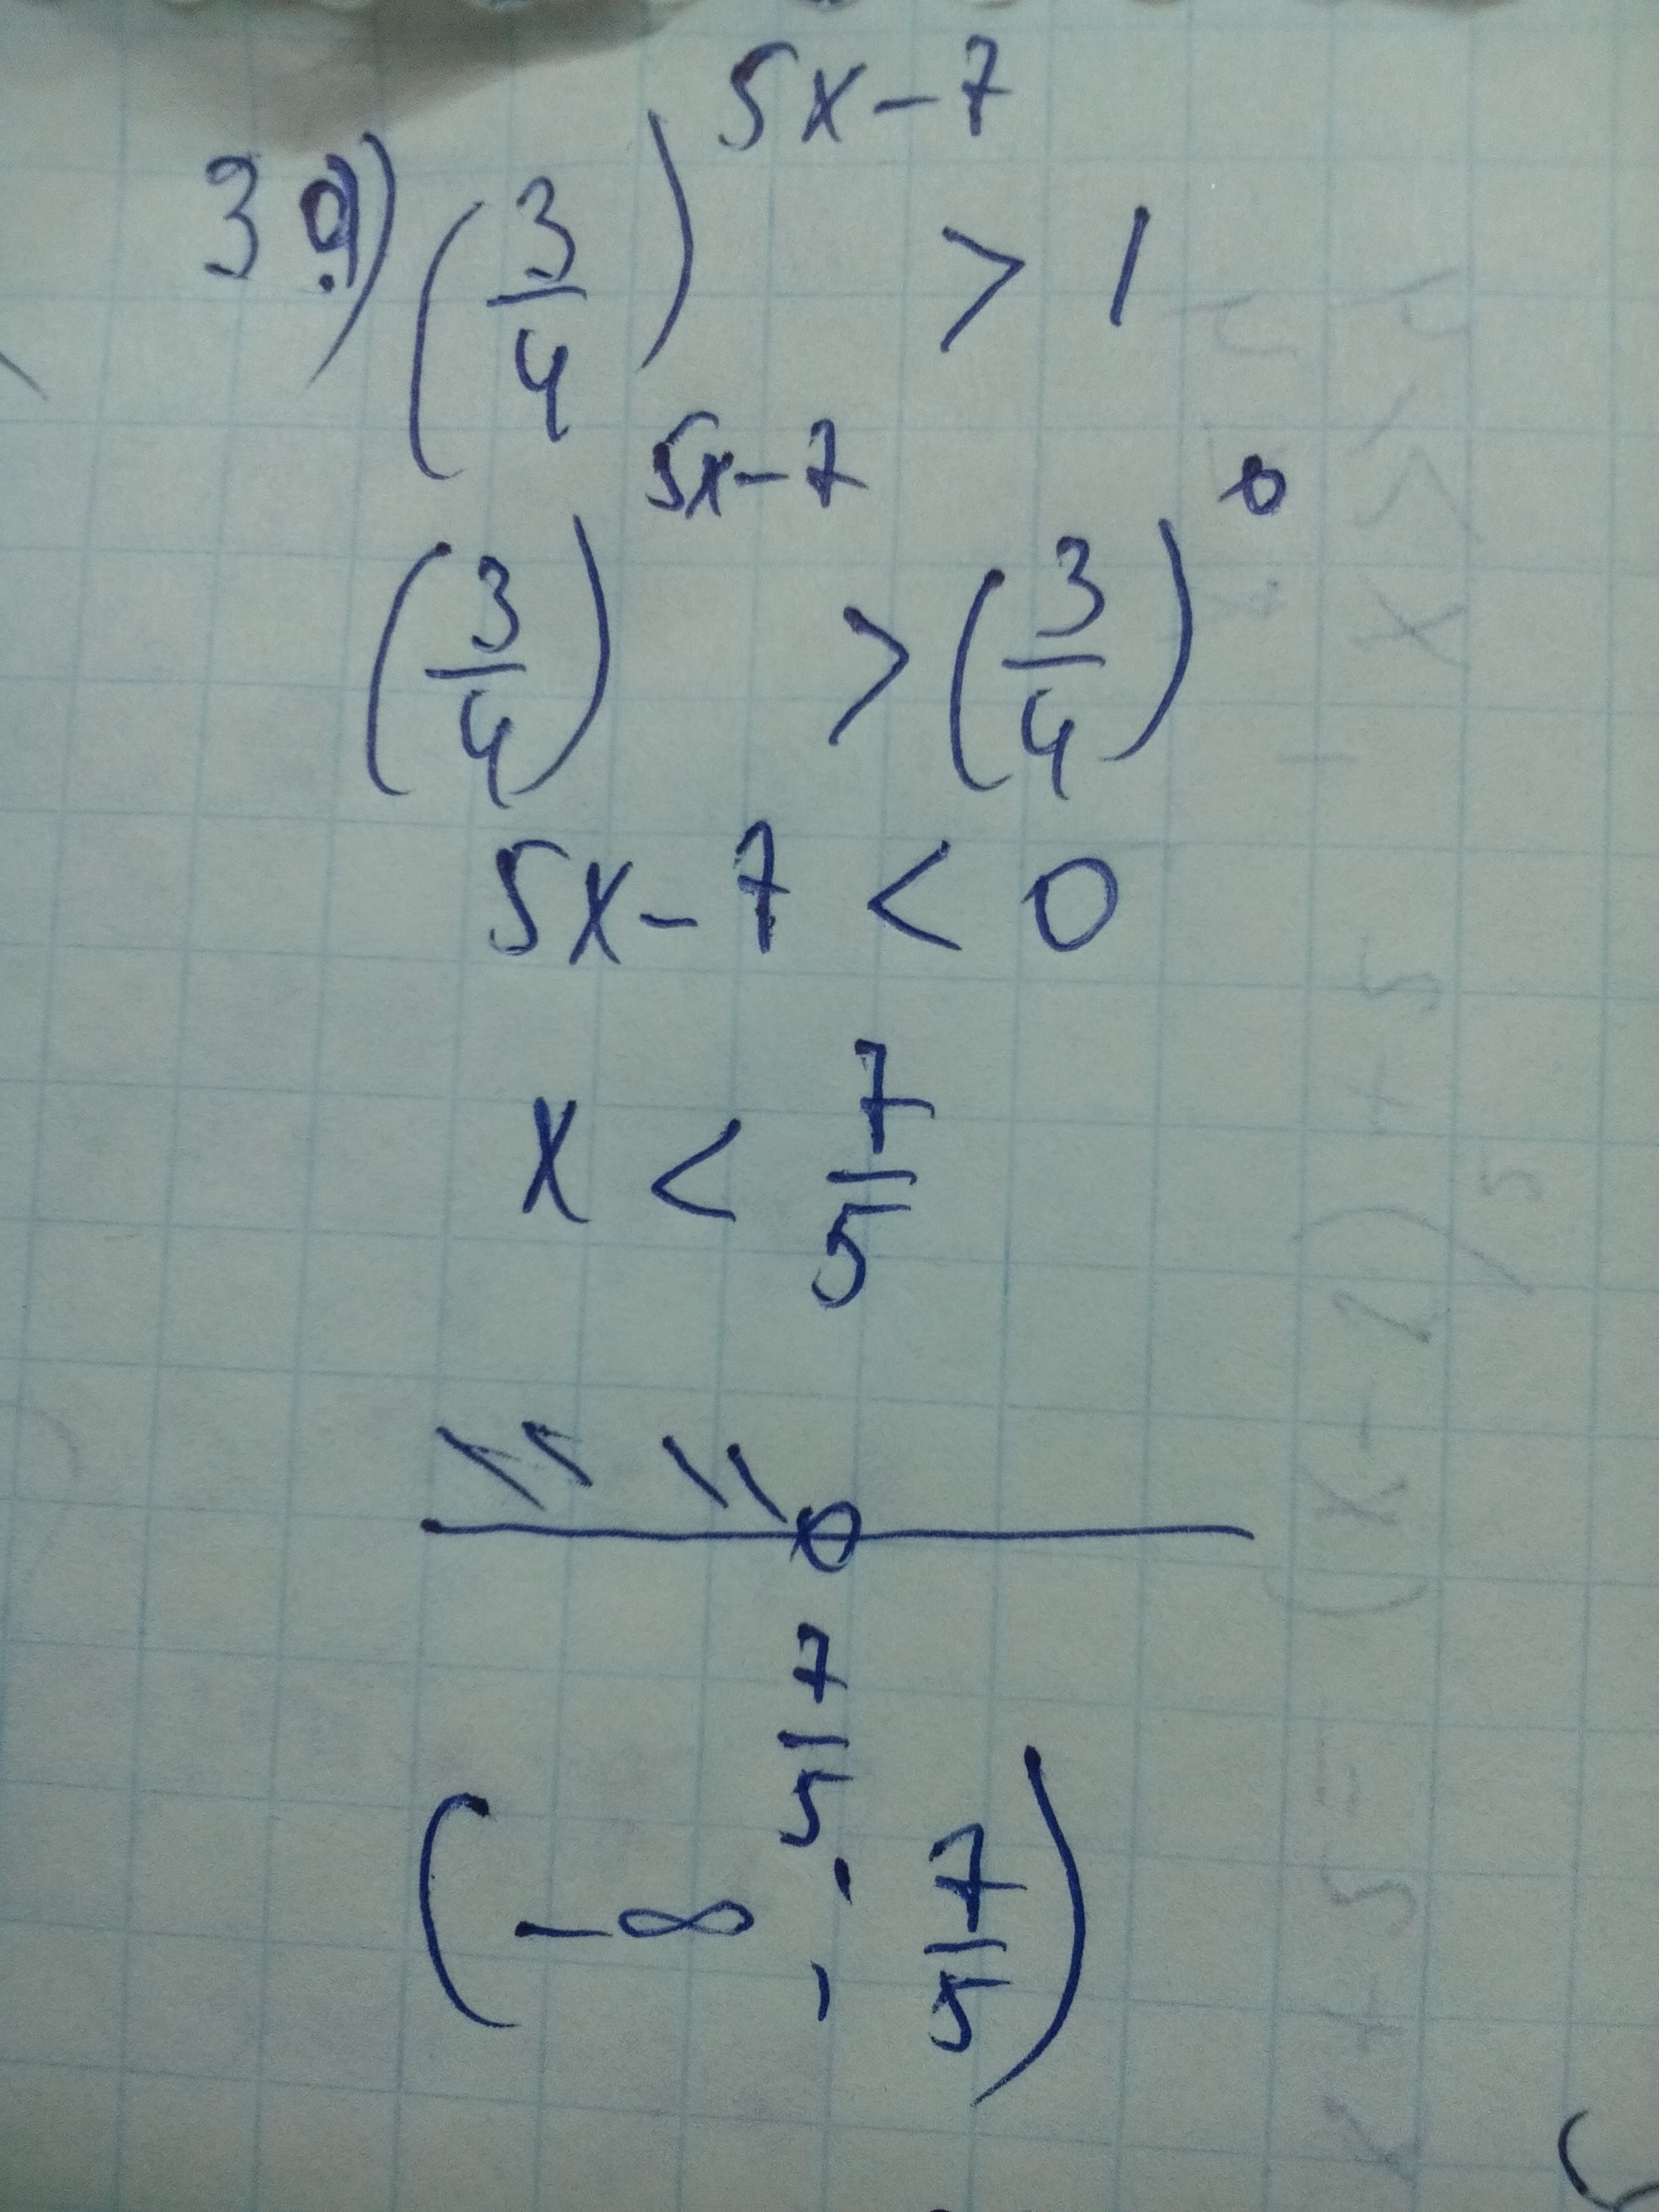 3 a) (3/4)^(5x-7) > 1
(3/4)^(5x-7) > (3/4)^0
5x-7 < 0
x < 7/5
7/5
(-∞; 7/5)